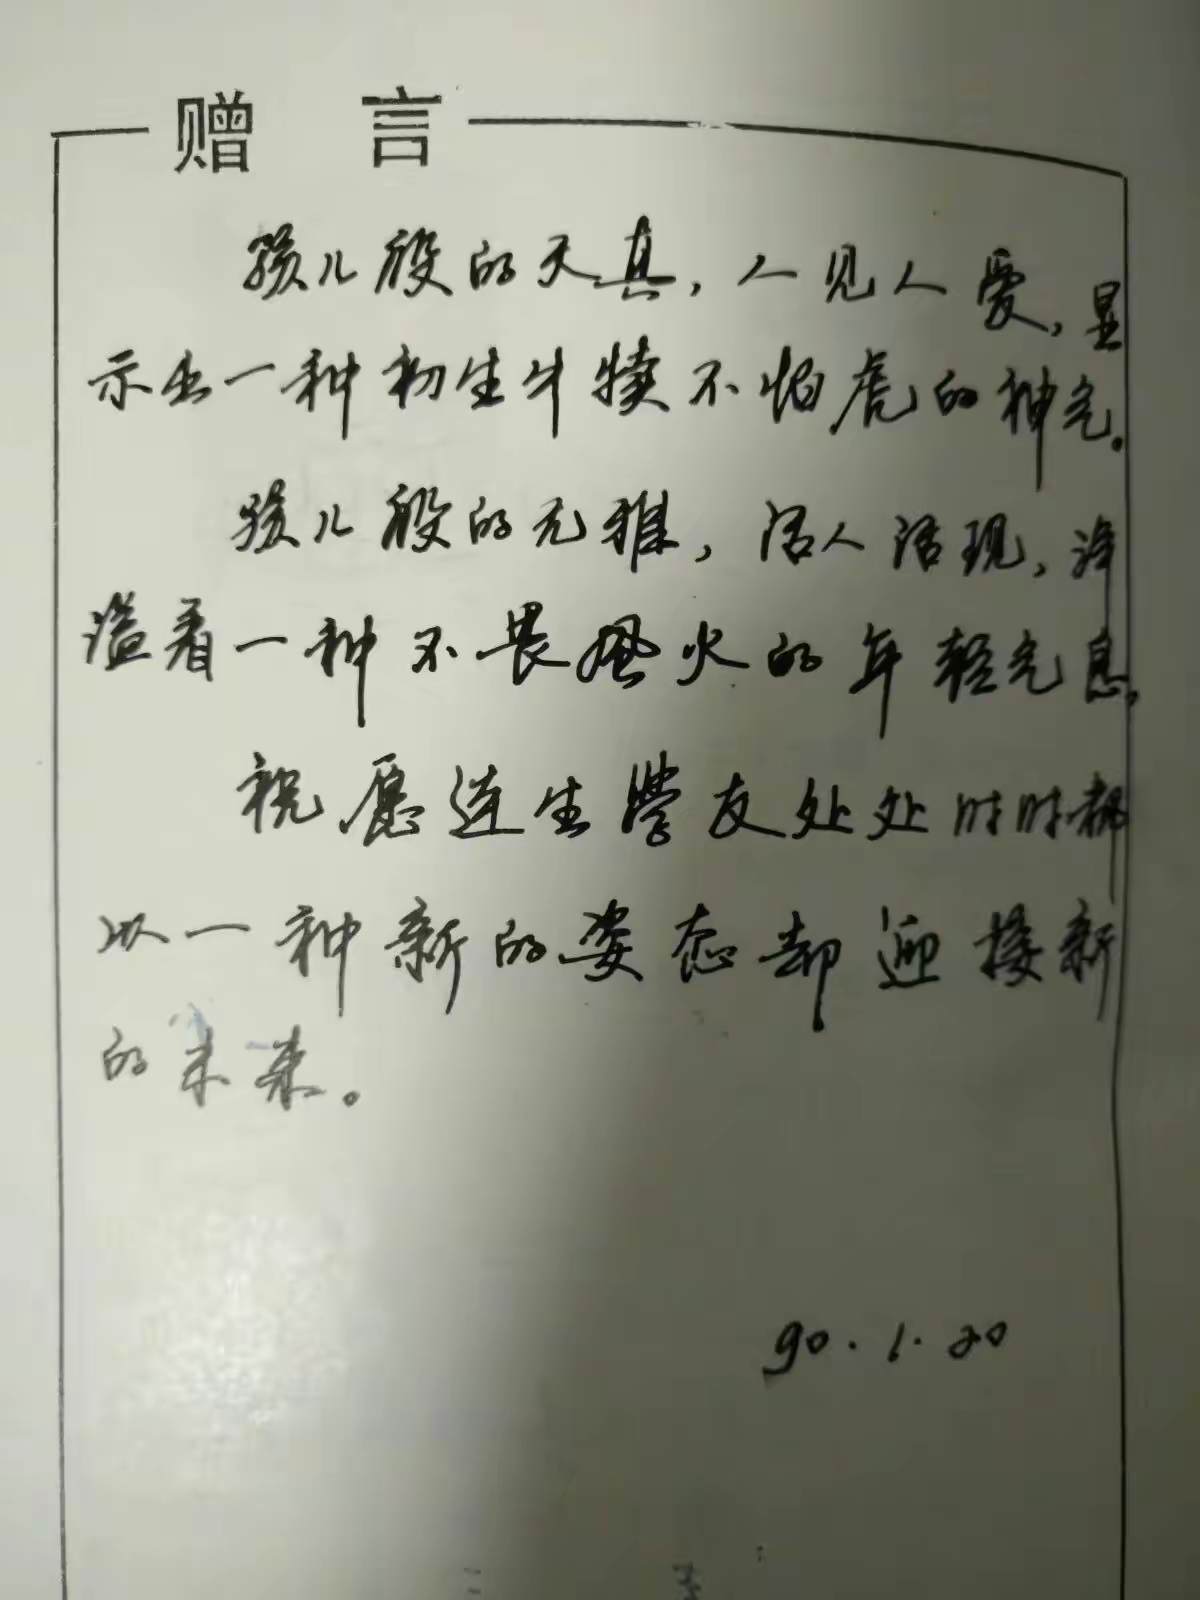 赠言
孩儿般的天真，人见人爱，显
示出一种初生牛犊不怕虎的神气。
孩儿般的无雅，活人活现，洋
溢着一种不畏风火的年轻气息，
祝愿连生学友处处时时都
以一种新的姿态却迎接新
的未来。
90.1.20